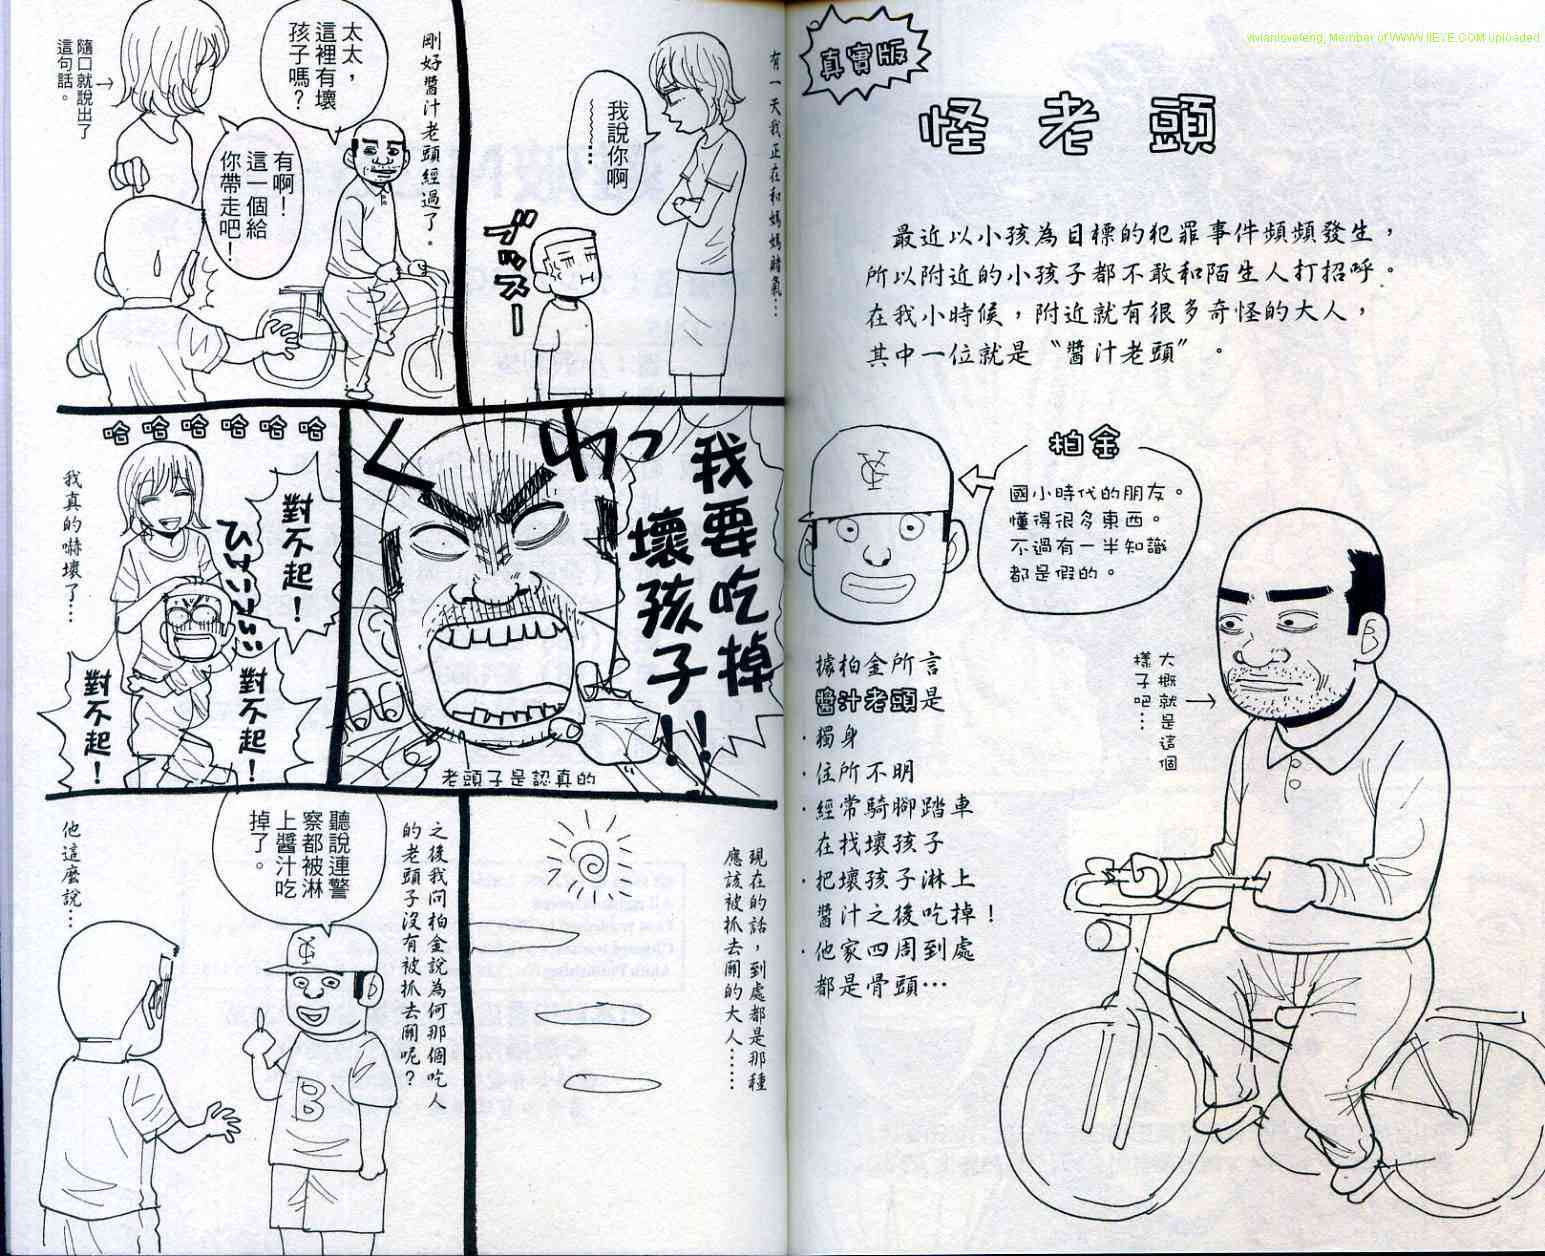 vivianlovefeng, Member of WWW.IIEYE.COM uploaded
真實版
怪老頭
最近以小孩為目標的犯罪事件頻頻發生，
所以附近的小孩子都不敢和陌生人打招呼。
在我小時候，附近就有很多奇怪的大人，
其中一位就是〝醬汁老頭〞。
柏金
國小時代的朋友。
懂得很多東西。
不過有一半知識
都是假的。
據柏金所言
醬汁老頭是
·獨身
·住所不明
·經常騎腳踏車
在找壞孩子
·把壞孩子淋上
醬汁之後吃掉！
·他家四周到處
都是骨頭…
大概就是這個
樣子吧…
有一天我正在和媽媽賭氣…
我說你啊
……
ブッスー
剛好醬汁老頭經過了。
太太，
這裡有壞
孩子嗎？
有啊！
這一個給
你帶走吧！
隨口就說出了
這句話。
我要吃掉
壞孩子!!
くわっ
老頭子是認真的
哈哈哈哈哈哈
對不起！
ひけぃぃぃぃ
對不起！
對不起！
我真的嚇壞了…
現在的話，到處都是那種
應該被抓去關的大人……
之後我問柏金說為何那個吃人
的老頭子沒有被抓去關呢？
聽說連警
察都被淋
上醬汁吃
掉了。
YC
B
他這麼說…